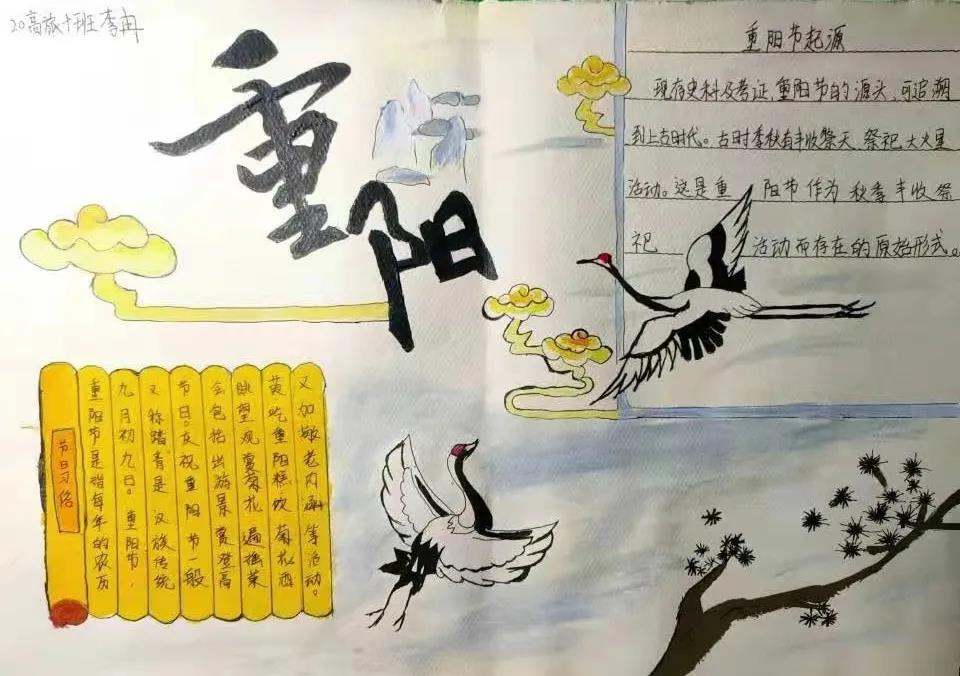 20高旅十班李冉
重阳
重阳节起源
现存史料及考证,重阳节的源头,可追溯
到上古时代。古时季秋有丰收祭天 祭祀大火星
活动。这是重 阳节作为秋季丰收祭
祀 活动而存在的原始形式。
节日习俗
重阳节是指每年的农历
九月初九日。重阳节，
又称踏青是汉族传统
节日。庆祝重阳节般
会包括出游景赏登高
眺望观赏菊花遍插茱
萸吃重阳糕饮菊花酒
又加敬老内涵等活动。